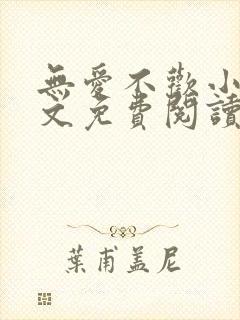 無愛不歡小
文免費閱讀
葉甫蓋尼